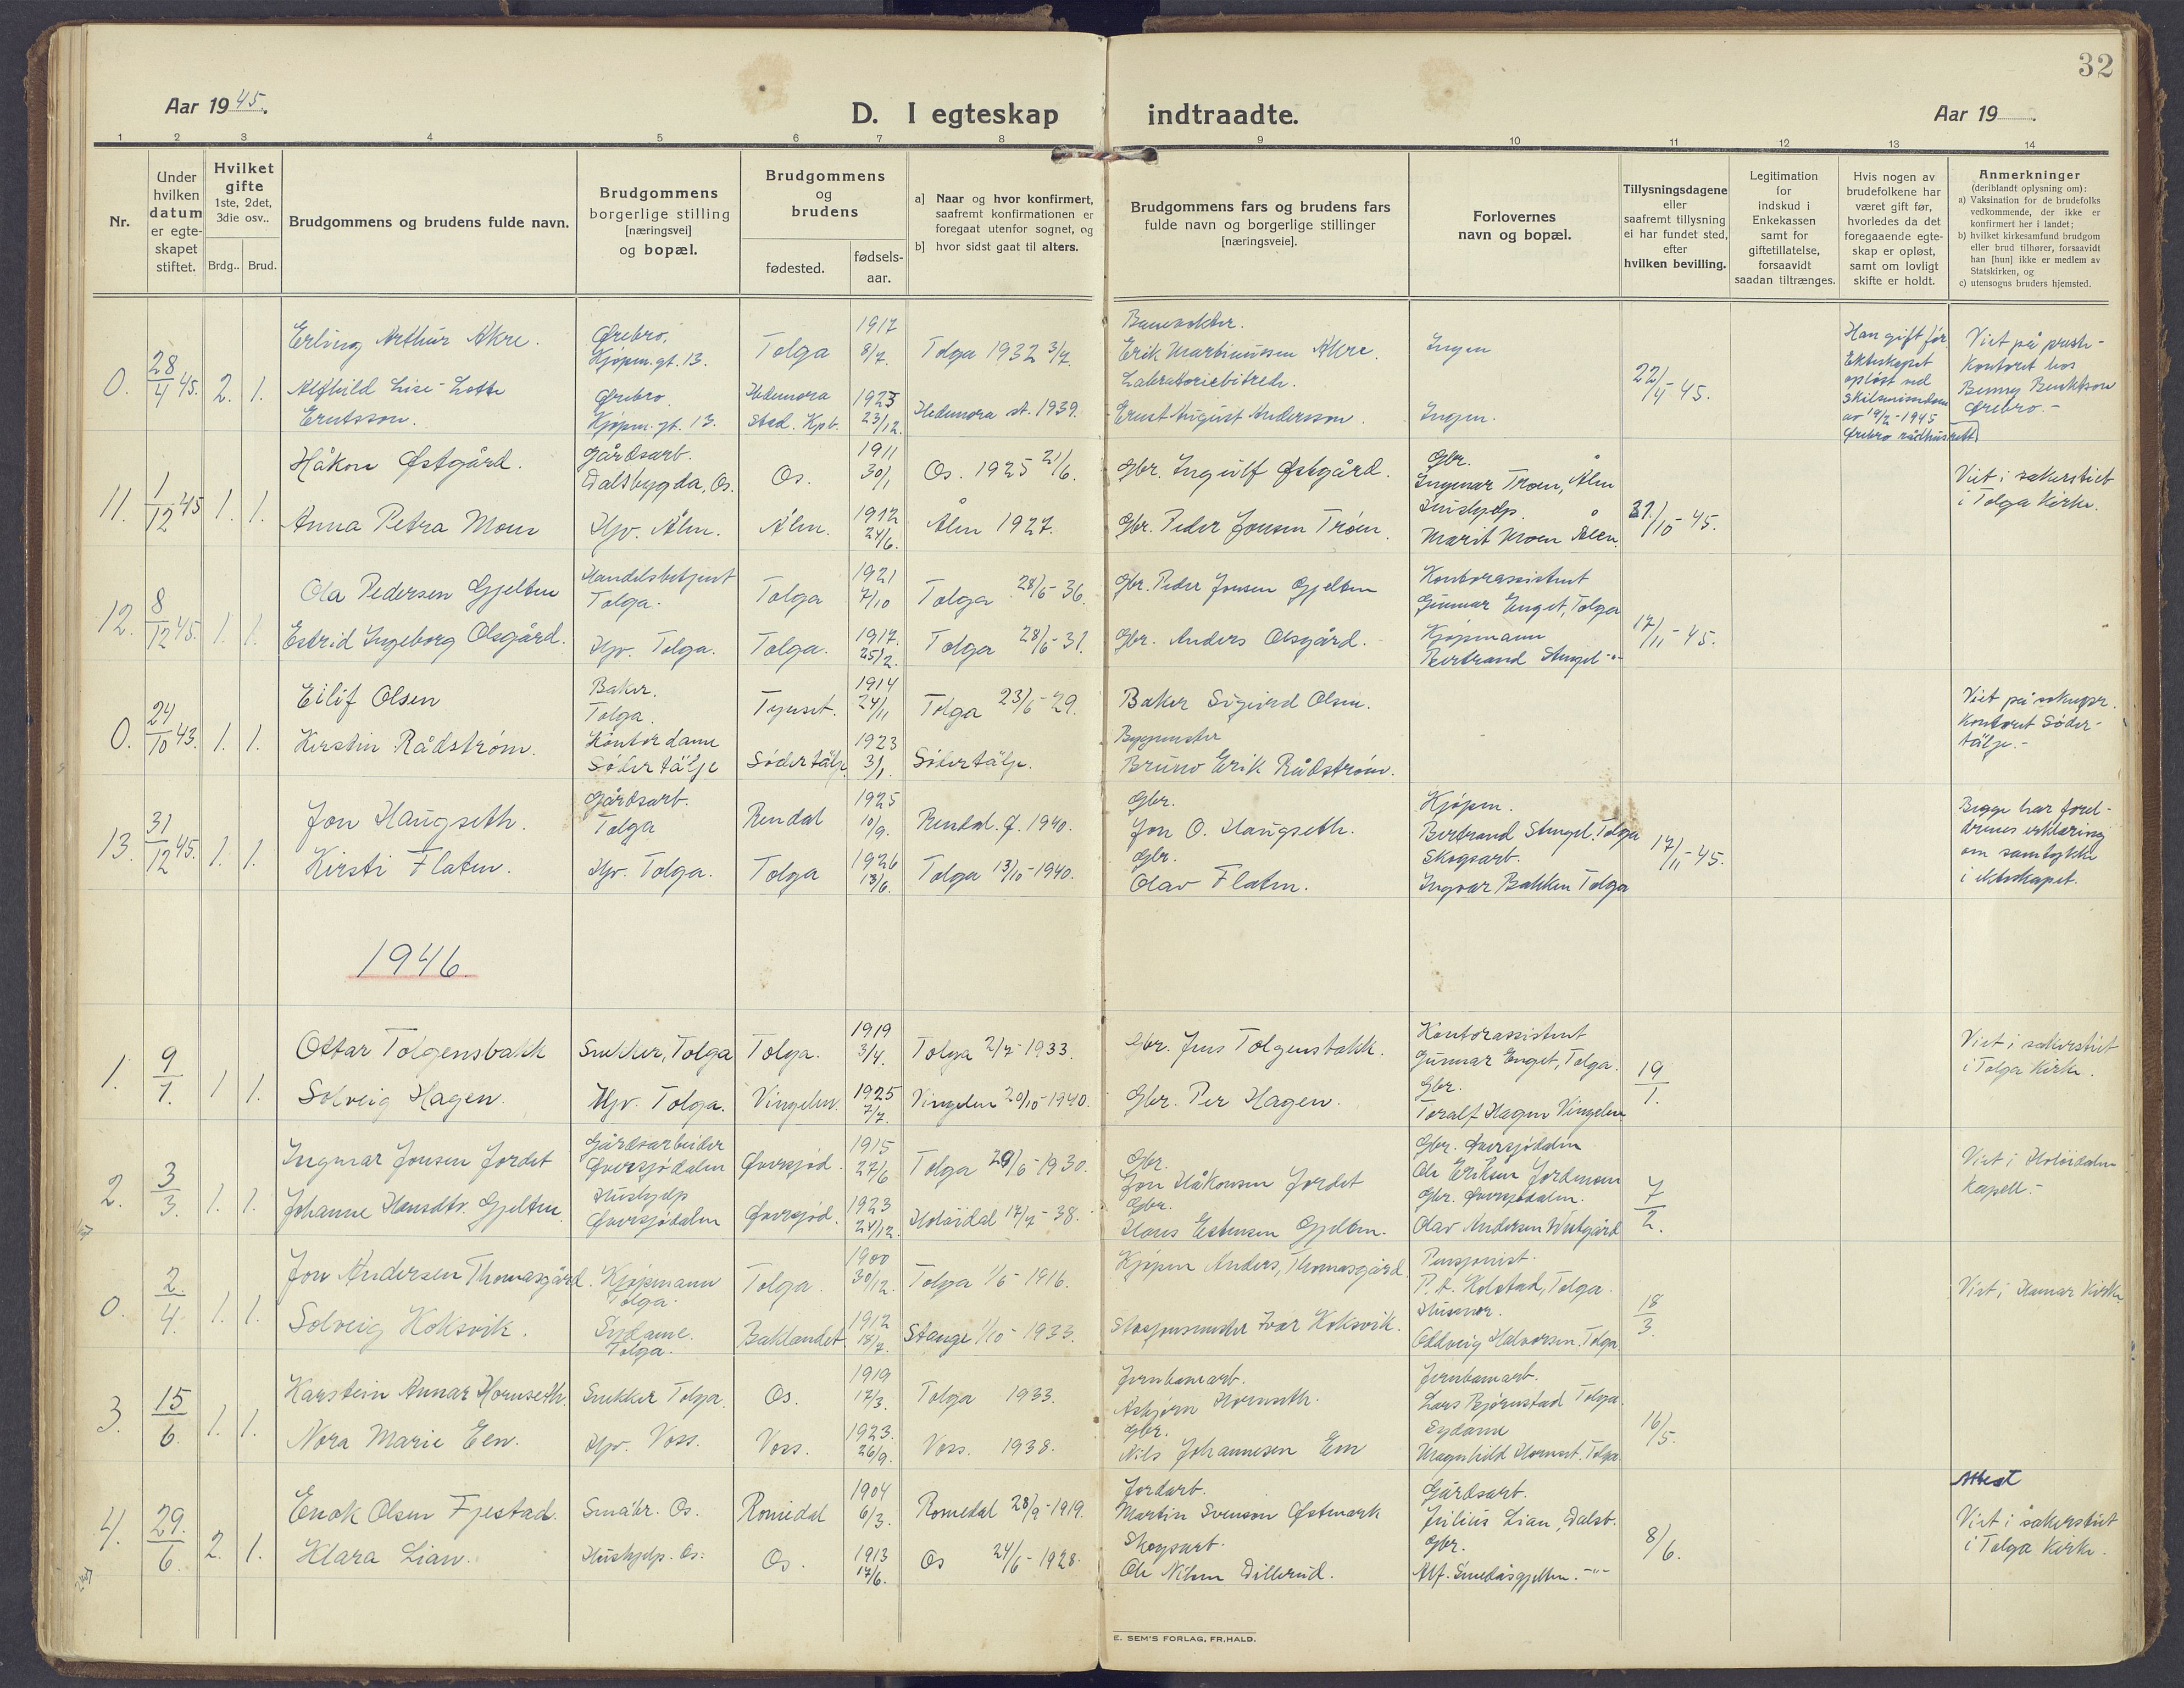 32
Aar 1945.
D. I egteskap indtraadte.
Aar 19
1 2 3 4 5 6 7 8 9 10 11 12 13 14
Nr.
Under hvilken datum er egteskapet stiftet.
Hvilket gifte 1ste, 2det, 3die osv..
Brdg.. Brud.
Brudgommens og brudens fulde navn.
Brudgommens borgerlige stilling [næringsvei] og bopæl.
Brudgommens og brudens
fødested.
fødselsaar.
a) Naar og hvor konfirmert, saafremt konfirmationen er foregaat utenfor sognet, og
b) hvor sidst gaat til alters.
Brudgommens fars og brudens fars fulde navn og borgerlige stillinger [næringsveie].
Forlovernes navn og bopæl.
Tillysningsdagene eller saafremt tillysning ei har fundet sted, efter hvilken bevilling.
Legitimation for indskud i Enkekassen samt for giftetillatelse, forsaavidt saadan tiltrænges.
Hvis nogen av brudefolkene har været gift før, hvorledes da det foregaaende egteskap er opløst, samt om lovligt skifte er holdt.
Anmerkninger (deriblandt oplysning om):
a) Vaksination for de brudefolks vedkommende, der ikke er konfirmert her i landet;
b) hvilket kirkesamfund brudgom eller brud tilhører, forsaavidt han [hun] ikke er medlem av Statskirken, og
c) utensogns bruders hjemsted.
0. 28/4 45. 2. 1.
Erling Arthur Akre. Ørebro, Kjøpm.gt. 13. Tolga 1917 8/7. Tolga 1932 3/7. Erik Martinussen Akre. Ingen
Alfhild Lise-Lotte Erntsson. Ørebro. Kjøpm. gt. 13. Hedemora stad. Kpb. 1923 23/12. Hedemora st. 1939. Laboratoriebitrede. Ernst August Andersson. Ingen.
22/4-45.
Han gift før. Ekteskapet opløst ved skilsmissedom av 19/2-1945 Ørebro rådhusrett
Viet på prestekontoret hos Benny Benktson Ørebro.-
11. 1/12 45 1. 1.
Håkon Østgård. Gårdsarb. Dalsbygda, Os. Os. 1911 30/1 Os. 1925 21/6. Gbr. Ingulf Østgård. Gbr. Ingmar Troen, Ålen
Anna Petra Moen Hjv. Ålen. Ålen. 1912 24/6. Ålen 1927. Gbr. Peder Jonsen Trøen. Hushjelp. Marit Moen Ålen.
27/10-45.
Viet i sakerstiet i Tolga Kirke.
12. 8/12 45. 1. 1.
Ola Pedersen Gjelten Handelsbetjent Tolga. Tolga 1921 7/10 Tolga 28/6-36. Gbr. Peder Jonsen Gjelten Kontorassistent Gunnar Enget, Tolga
Estrid Ingeborg Olsgård. Hjv. Tolga. Tolga. 1917. 25/2. Tolga 28/6-31. Gbr. Anders Olsgård. Kjøpmann Bertrand Stengel -"-
17/11-45.
0. 24/10 43. 1. 1.
Eilif Olsen Baker. Tolga. Tynset. 1914 24/11 Tolga 23/6-29. Baker Sigurd Olsen.
Kerstin Rådstrøm. Kontordame Södertälje Södertälje 1923 3/1. Södertälje. Byggmester Bruno Erik Rådstrøm.
Viet på sokupr. kontoret Södertälje.-
13. 31/12 45. 1. 1.
Jon Haugseth. Gårdsarb. Tolga Rendal 1925 10/9. Rendal. Ø. 1940. Gbr. Jon O. Haugseth. Kjøpm. Bertrand Stengel. Tolga
Kirsti Flaten. Hjv. Tolga. Tolga 1926 13/6. Tolga 13/10-1940. Gbr. Olav Flaten. Skogsarb. Ingvar Bakken Tolga
17/11-45.
Begge har foreldrenes erklæring om samtykke i ekteskapet.
1946.
1. 9/1. 1 1.
Ottar Tolgensbakk Snekker, Tolga Tolga. 1919 3/4. Tolga 2/7-1933. Gbr. Jens Tolgensbakk. Kontorassistent Gunnar Enget, Tolga.
Solveig Hagen. Hjv. Tolga. Vingelen. 1925 7/7. Vingelen 20/10-1940. Gbr. Per Hagen. Gbr. Toralf Hagen Vingelen
19/1.
Viet i sakerstiet i Tolga Kirke.
2. 3/3. 1. 1.
Ingmar Jonsen Jordet Gårdsarbeider Øversjødalen Øversjød. 1915 27/6 Tolga 29/6-1930. Gbr. Jon Håkonsen Jordet Gbr. Øversjødalen Ole Eriksen Jordmoen
Johanne Hansdtr. Gjelten Hushjelp Øversjødalen Øversjød. 1923 24/12. Holøidal 17/7-38. Gbr. Hans Estensen Gjelten. Gbr. Øversjødalen. Olav Andersen Westgård
7/2.
Viet i Holøidalen Kapell.-
0. 2/4. 1. 1.
Jon Andersen Thomasgård. Kjøpmann Tolga. Tolga. 1900 30/12. Tolga 1/6-1916. Kjøpm Anders, Thomasgård. Pensjonist. P. A. Kolstad, Tolga.
Solveig Koksvik. Sydame. Tolga. Baklandet 1912 18/7. Stange 1/10-1933. Stasjonsmester Ivar Koksvik. Husmor. Oddveig Halvorsen. Tolga.
18/3.
Viet i Hamar Kirke
3. 15/6. 1. 1.
Karstein Annar Hornseth. Snekker Tolga. Os. 1919 17/3. Tolga 1933. Jernbanearb. Asbjørn Hornseth. Jernbanearb. Lars Bjørnstad Tolga.
Nora Marie Een. Hjv. Voss. Voss. 1923. 26/9. Voss. 1938. Gbr. Nils Johannesen Een Sydame Magnhild Hornset. Tolga.
16/5.
4. 29./6. 2. 1.
Enok Olsen Fjestad. Småbr. Os. Romedal 1904 6/3. Romedal 28/9-1919. Jordarb. Martin Svenson Østmark Gårdsarb. Julius Lian, Dalsb.
Klara Lian. Hushjelp. Os. Os. 1913 17/6. Os 24/6-1928. Skogsarb. Ole Nilsen Dillerud. Gbr. Alf. Smedåsgjelten. -"-
8/6.
Attest
Viet i sakerstiet i Tolga Kirke.
E. SEM'S FORLAG, FR.HALD.